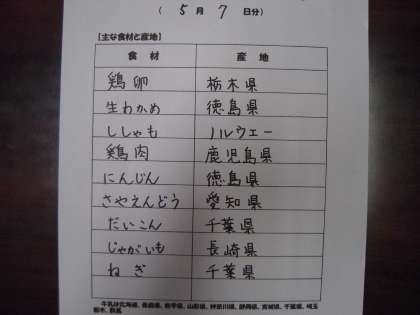 ( 5 月 7 日分)
[主な食材と産地]
食 材 産 地
鶏卵 栃木県
生わかめ 徳島県
ししゃも ノルウェー
鶏肉 鹿児島県
にんじん 徳島県
さやえんどう 愛知県
だいこん 千葉県
じゃがいも 長崎県
ねぎ 千葉県
牛乳は北海道、青森県、岩手県、山形県、神奈川県、静岡県、宮城県、千葉県、埼玉
栃木、群馬